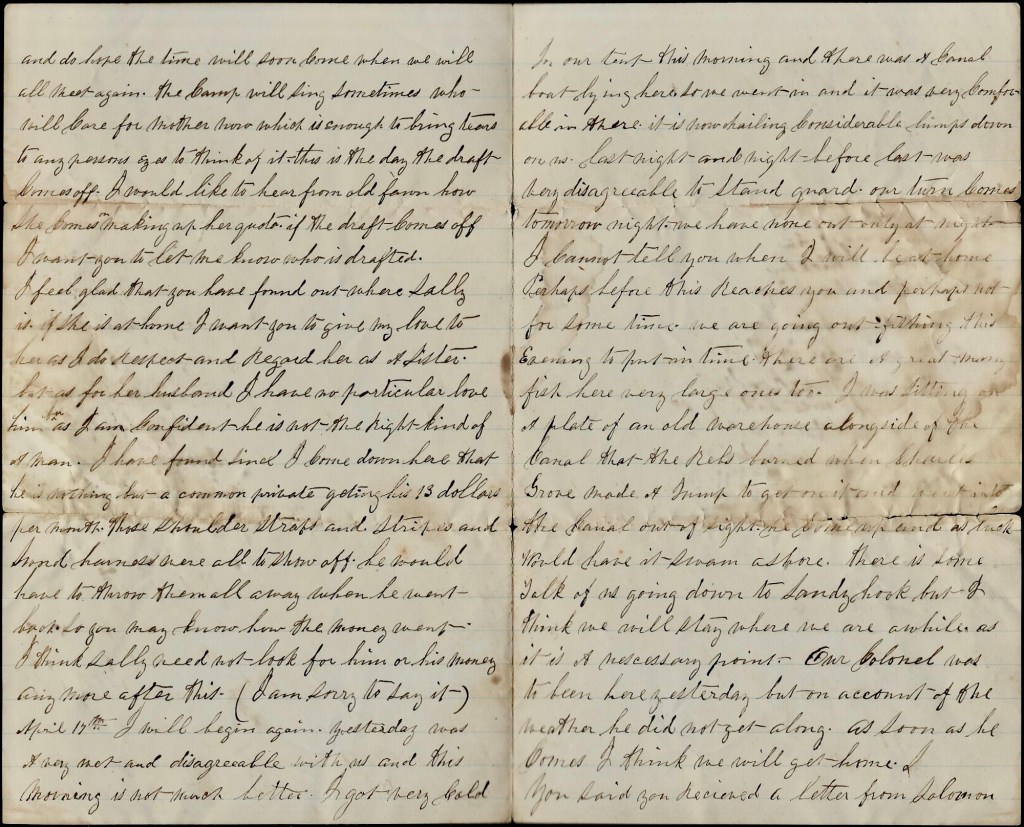 and do hope the time will soon Come when we will
all meet again. the Camp will sing sometimes who
will Care for Mother now which is enough to bring tears
to any persons eyes to think of it. this is the day the draft
Comes off. I would like to hear from old fann how
She Comes in making up her quota. if the draft Comes off
I want you to let me know who is drafted.
I feel glad that you have found out where Sally
is. if She is at home I want you to give my love to
her as I do Respect and Regard her as A Sister.
but as for her husband I have no particular love
him for as I am Confident he is not the Right kind of
A man. I have found Since I Come down here that
he is nothing but a common private geting his 13 dollars
per month. those Shoulder Straps and Stripes and
Sword harness were all to Show off. he would
have to throw them all away when he went
back. So you may know how the money went.
I think Sally need not look for him or his money
any more after this. (I am Sorry to Say it)
April 17th I will begin again. yesterday was
A very wet and disagreeable with us and this
Morning is not much better. I got very Cold
In our tent this Morning and there was A Canal
boat lying here. so we went in and it was very Comfor
able in there. it is now hailing Considerable lumps down
on us. last night and night before last was
very disagreeable to Stand guard. our turn Comes
tomorrow night. we have none out only at night
I Cannot tell you when I will be at home
Perhaps before this Reaches you and perhaps not
for Some time. we are going out fishing this
Evening to put in time. there are A great many
fish here very large ones too. I was Sitting on
A plate of an old warehouse alongside of the
Canal that the Rebs burned when Charles
Grove made A Jump to get on it and went into
the Canal out of Sight. he Come up and as luck
Would have it Swam ashore. there is some
Talk of us going down to Sandy hook but I
think we will stay where we are awhile. as
it is A nescessary point. Our Colonel was
to been here yesterday but on account of the
weather he did not get along. as soon as he
Comes I think we will get home. I
You Said you Recieved a letter from Solomon